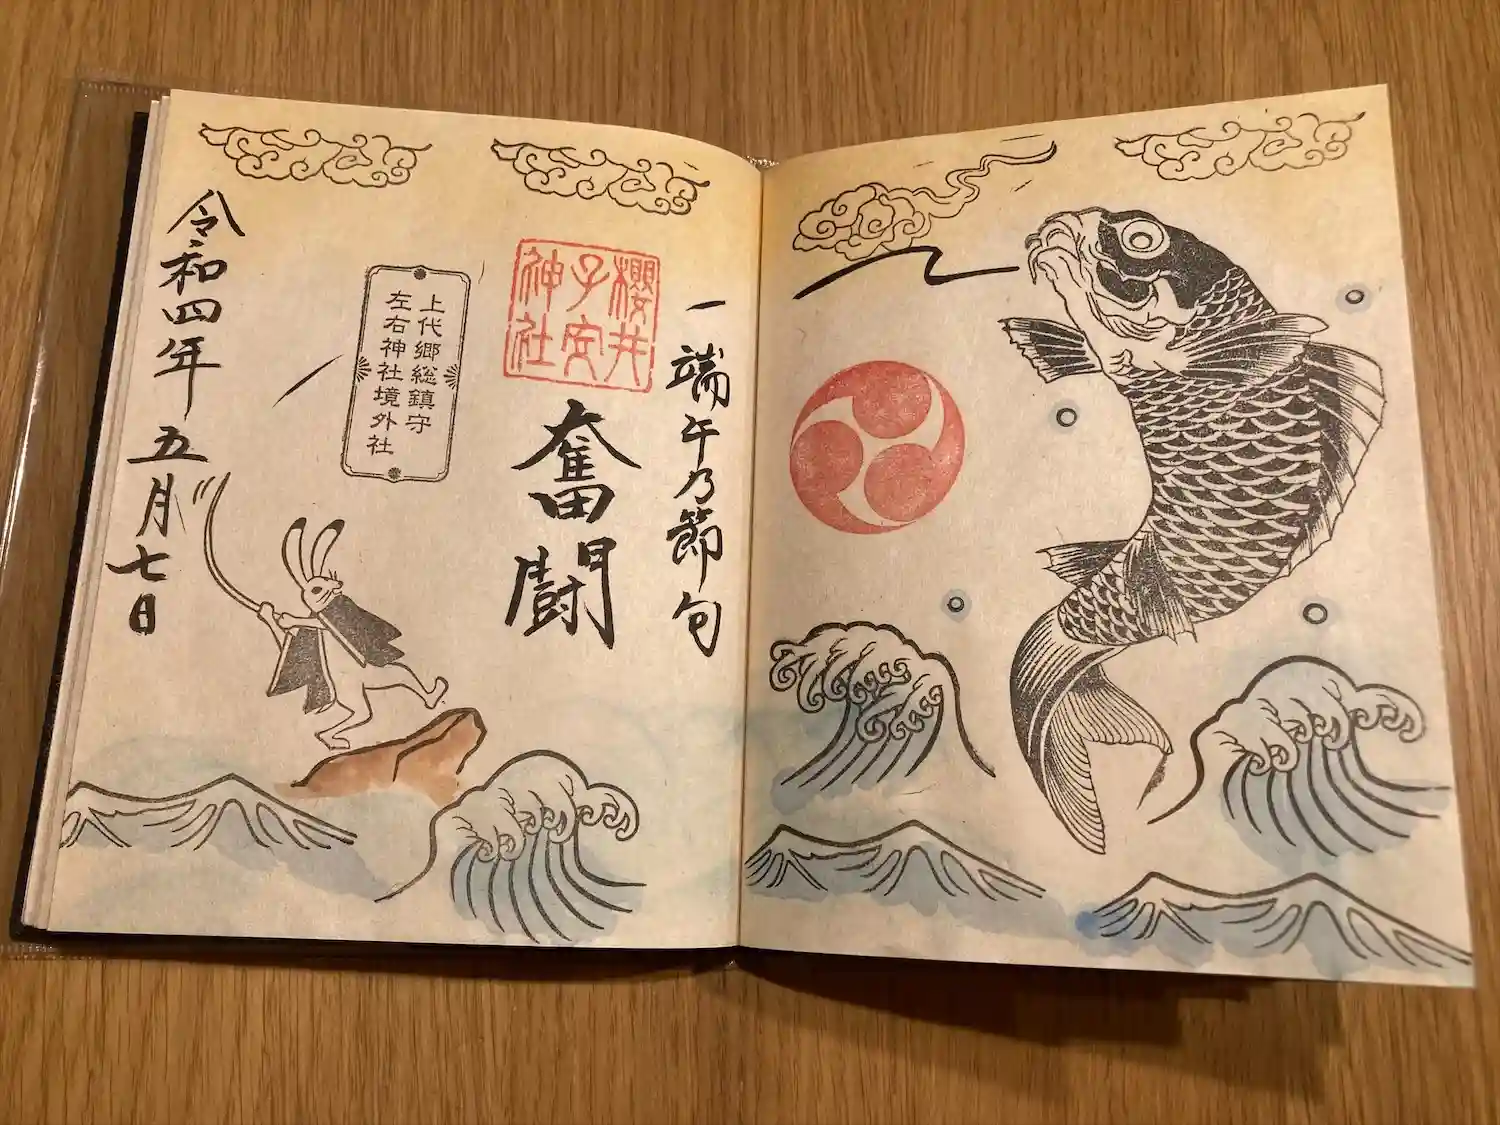 端午乃節句
奮闘
櫻井
子安
神社
上代郷総鎮守
左右神社境外社
令和四年五月七日